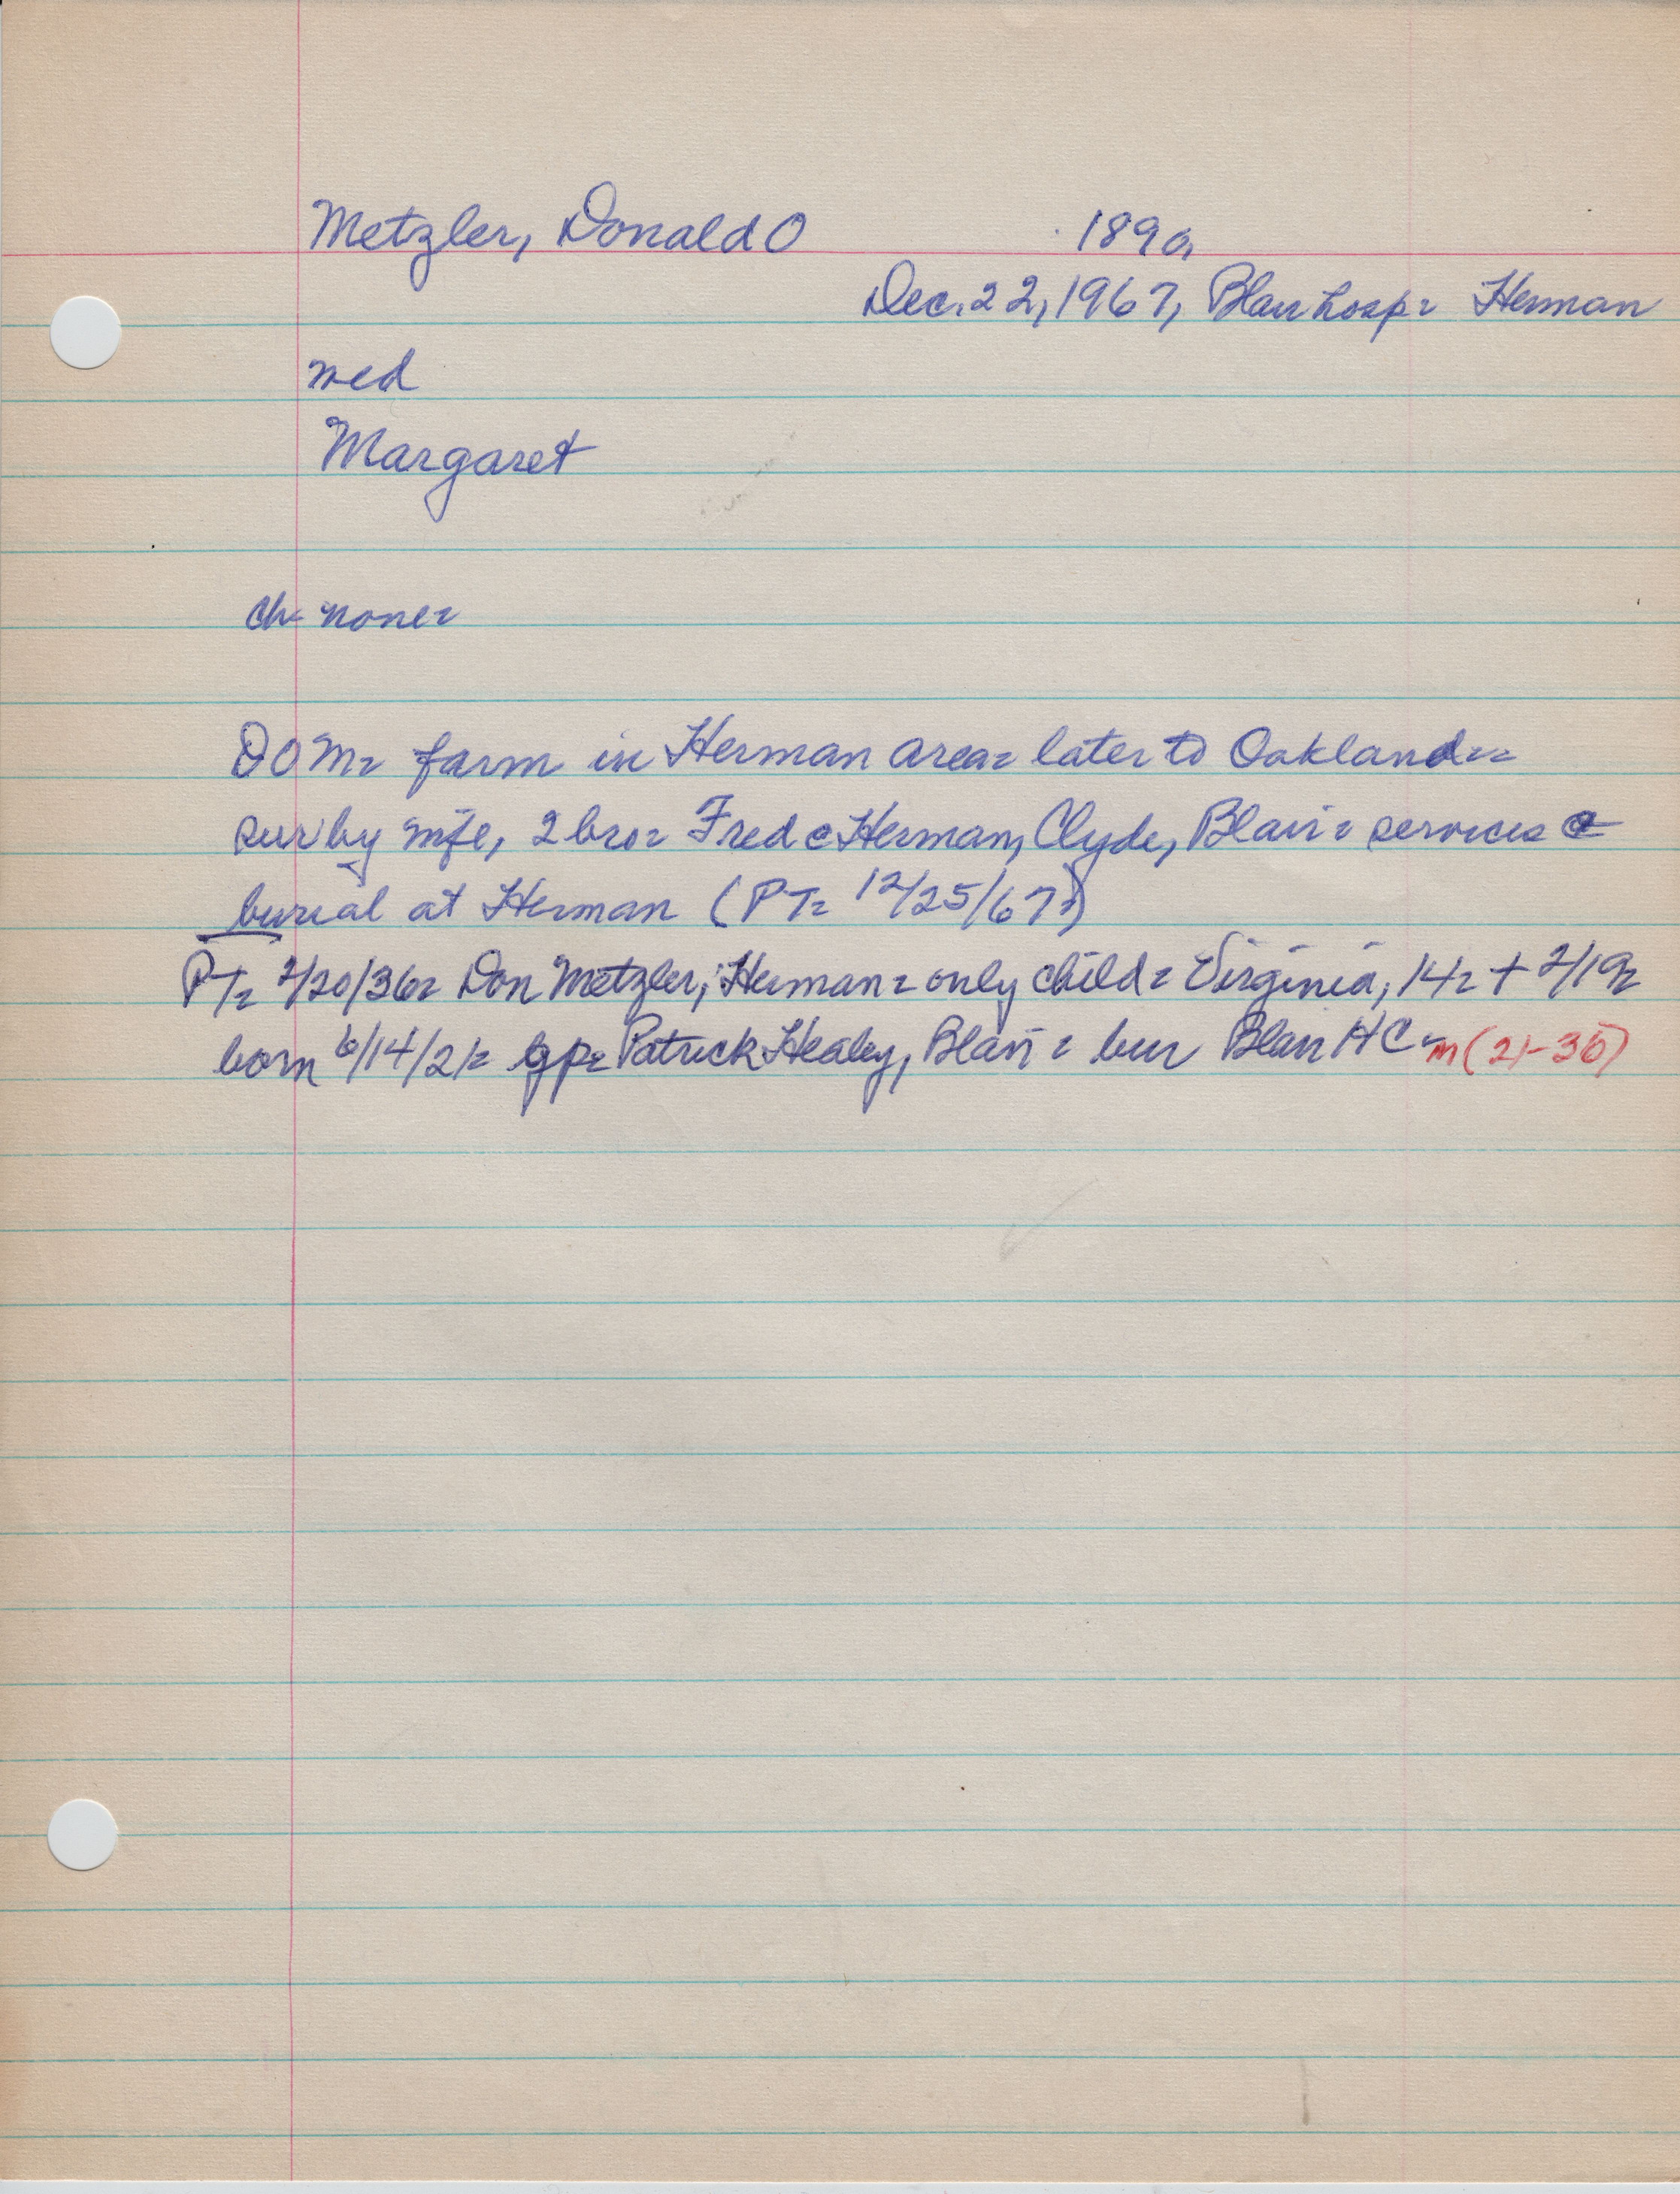 Metzler, Donald O 1890,
Dec. 22, 1967, Blair hosp= Herman
wed
Margaret
ch= none=
DOM= farm in Herman area= later to Oakland==
sur by wife, 2 bro= Fred c Herman, Clyde, Blair= services &
burial at Herman (PT= 12/25/67=)
PT= 2/20/36= Don Metzler, Herman= only child= Virginia, 14= + 2/19=
born 6/14/21= gp= Patrick Healey, Blair= bur Blair HC=m (21-36)